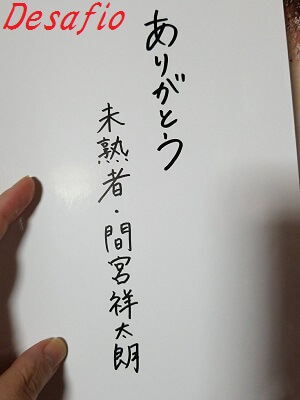 Desafio
ありがとう
未熟者・間宮祥太朗